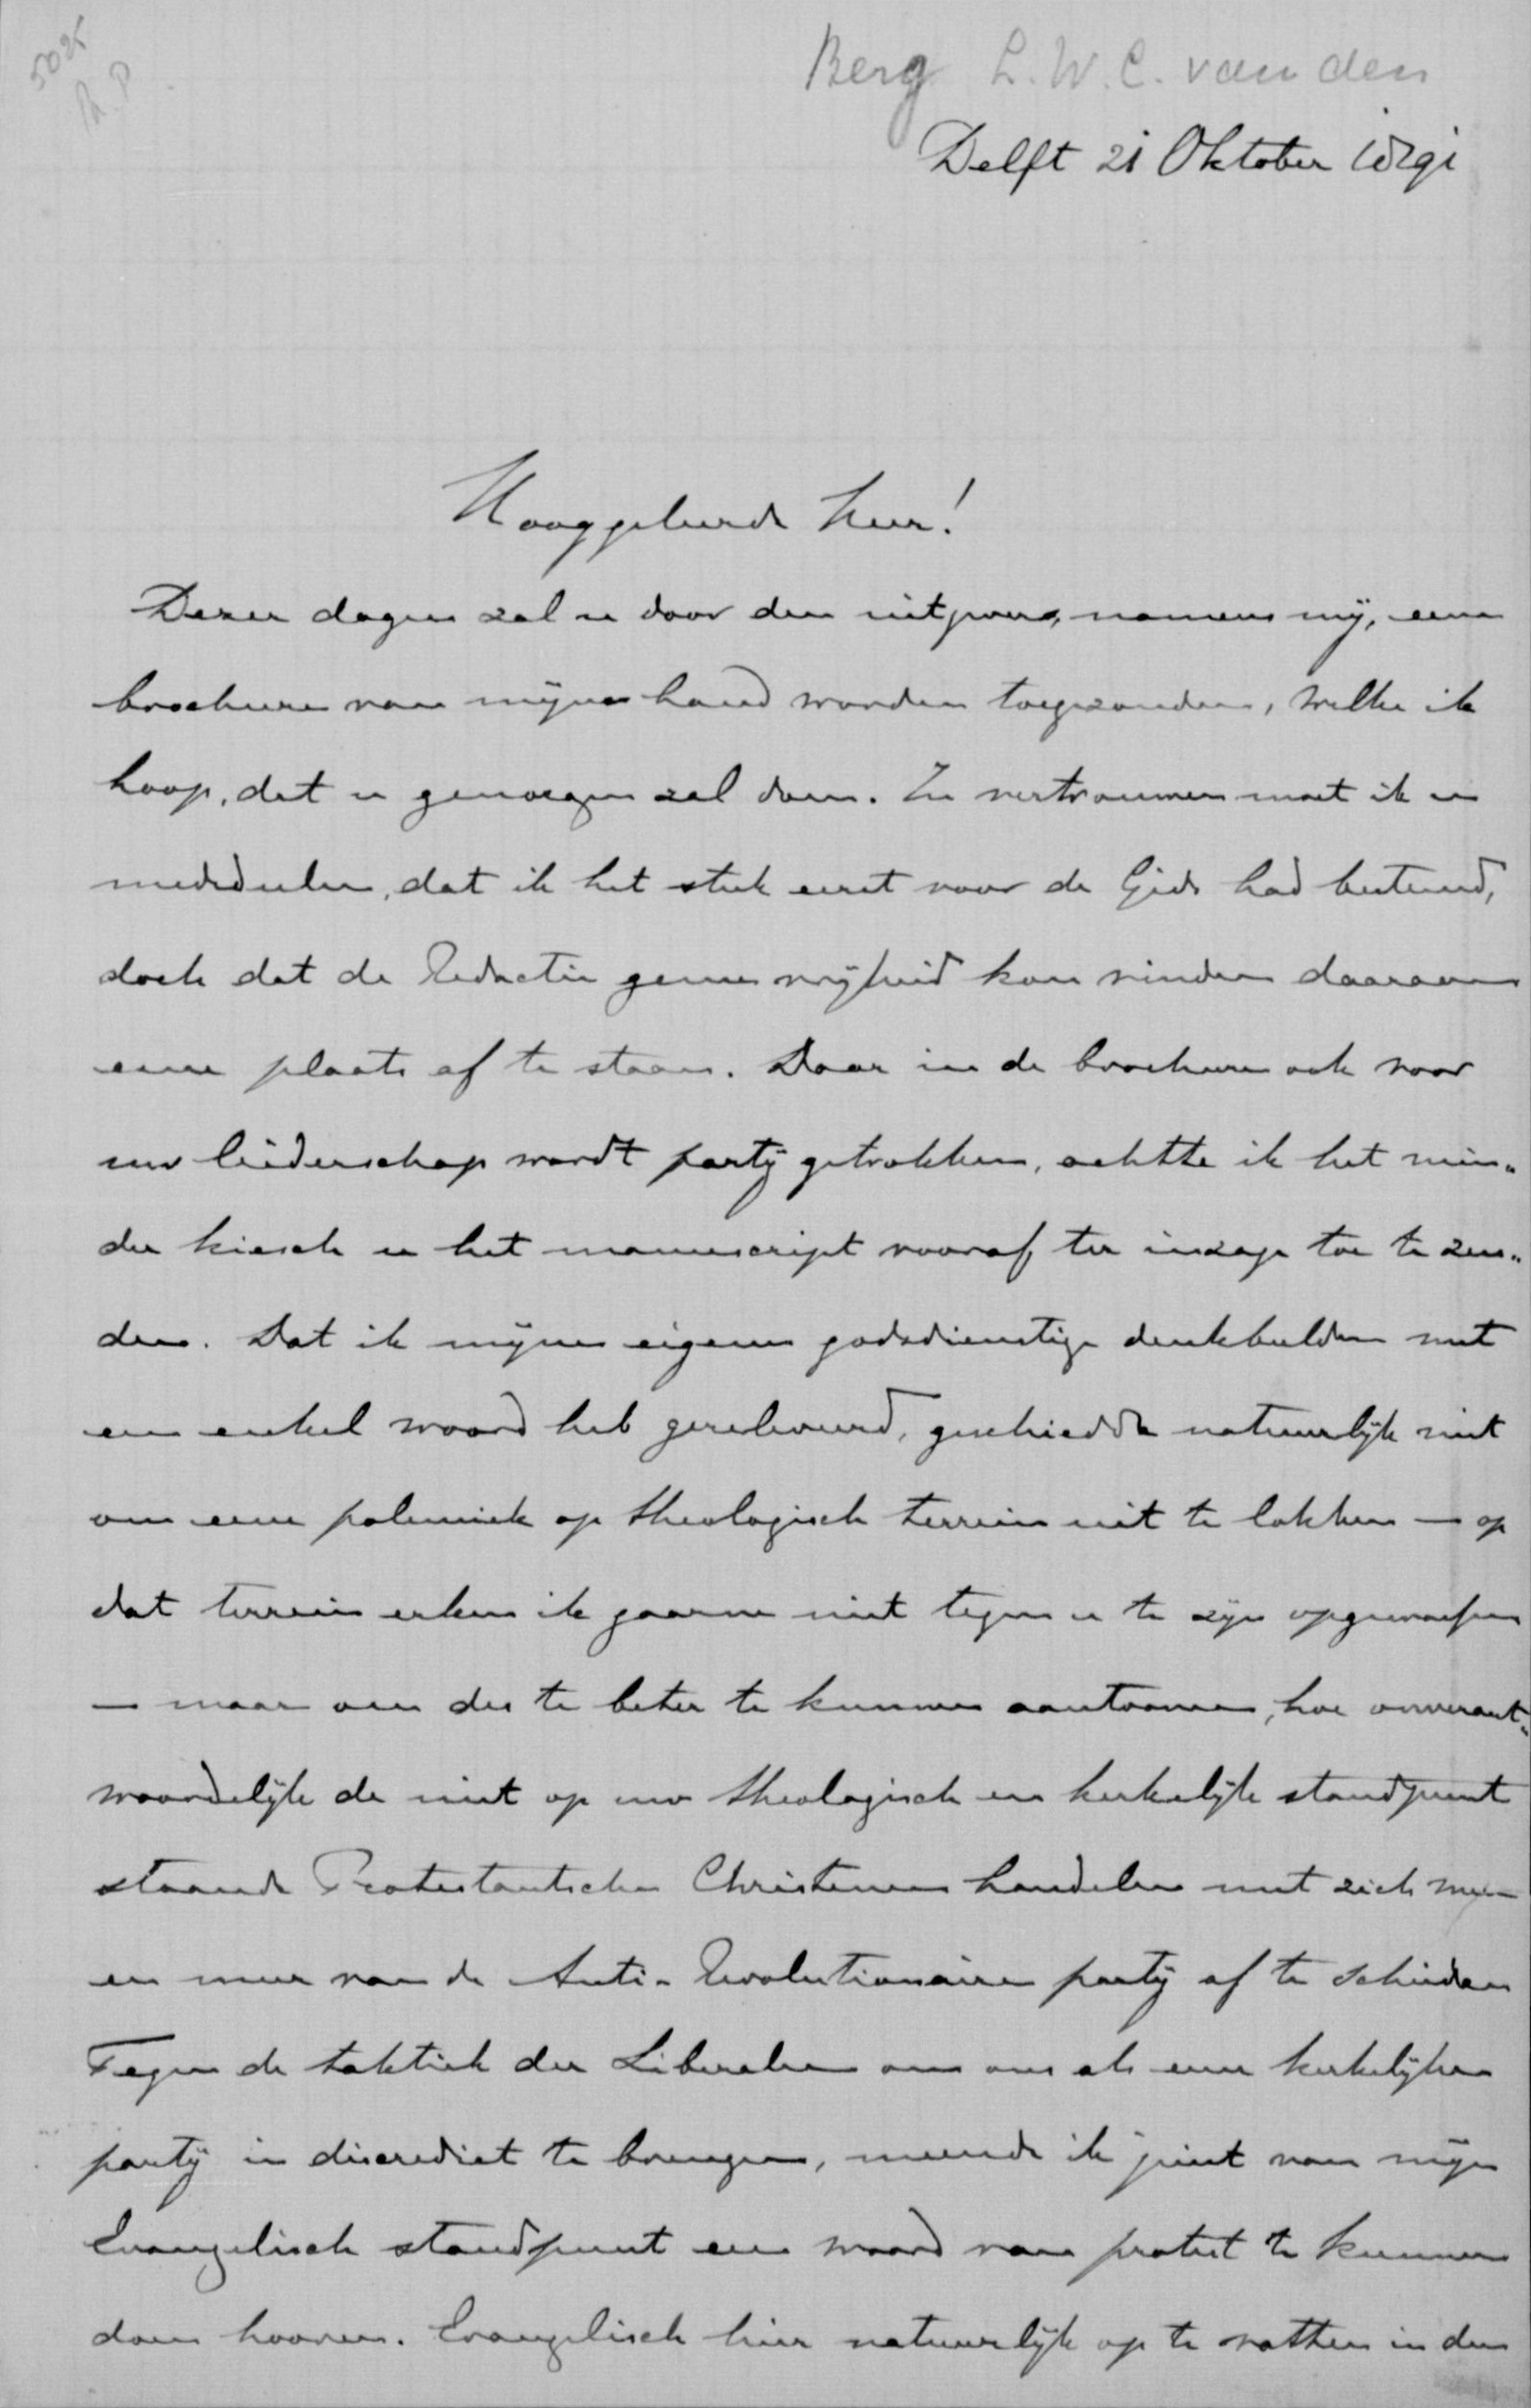 5025
Berg L.W.C. van den
Delft 21 Oktober 1891
Hooggeleerde Heer!
Dezer dagen zal u door den uitgever, namens mij, eene
brochure van mijne hand worden toegezonden, welke ik
hoop, dat u genoegen zal doen. In vertrouwen moet ik u
mededeelen, dat ik het stuk eerst voor de Gids had bestemd,
doch dat de Redactie geene vrijheid kon vinden daaraan
eene plaats af te staan. Daar in de brochure ook voor
uw leiderschap wordt partij getrokken, achtte ik het min„
der kiesch u het manuscript vooraf ter inzage toe te zen„
den. Dat ik mijne eigene godsdienstige denkbeelden met
een enkel woord heb gereleveerd, geschiedde natuurlijk niet
om eene polemiek op theologisch terrein uit te lokken — op
dat terrein erken ik gaarne niet tegen u te zijn opgewassen
— maar om des te beter te kunnen aantoonen, hoe onverant„
woordelijk de niet op uw theologisch en kerkelijk standpunt
staande Protestantsche Christenen handelen met zich meer
en meer van de Anti-Revolutionaire partij af te scheiden
Tegen de taktiek der Liberalen om ons als eene kerkelijke
partij in discrediet te brengen, meende ik juist van mijn
Evangelisch standpunt een woord van protest te kunnen
doen hooren. Evangelisch hier natuurlijk op te vatten in den